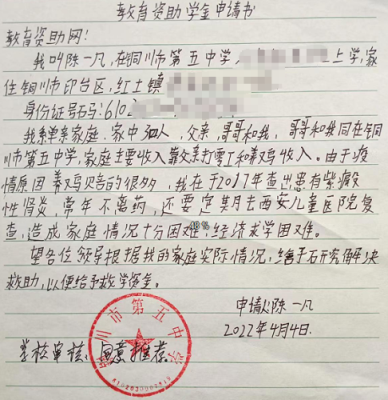 教育资助学金申请书
教育资助网!
我叫陈一凡,在铜川市第五中学 上学,家
住铜川市印台区,红土镇
身份证号码:6102
我系单亲家庭.家中 父亲,哥哥和我,哥哥和我同在铜
川市第五中学,家庭主要收入靠父亲打零工和养鸡收入。由于疫
情原因养鸡 的很多,我在于2017年查出患有紫癜
性肾炎,常年不离药,还要定期去西安儿童医院复
查,造成家庭情况十分困难,经济求学困难。
望各位领导根据我的家庭实际情况,给予研究解决
救助,以便给予救学资金。
申请人陈一凡
2022年4月4日.
学校审核:同意推荐
川市第五中学